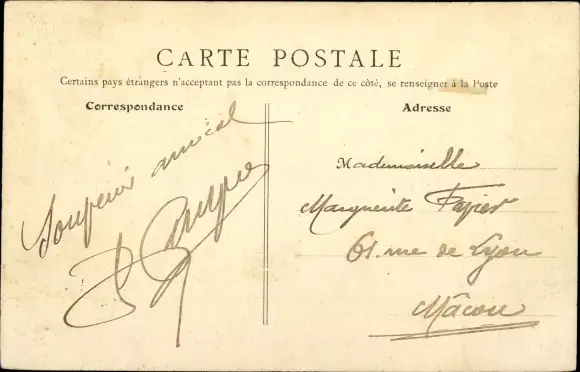 CARTE POSTALE
Certains pays étrangers n'acceptant pas la correspondance de ce côté, se renseigner à la Poste
Correspondance
Adresse
Souvenir amical
Mademoiselle
Marguerite
61. rue de Lyon
Mâcon